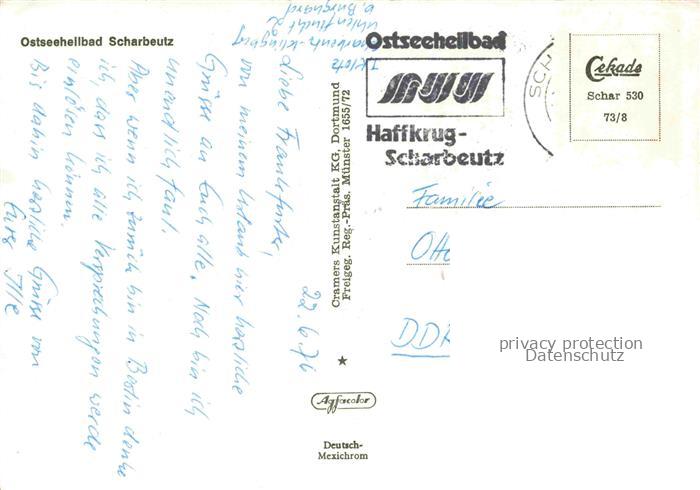 Ostseeheilbad Scharbeutz
I. Klotz
Scharbeutz-Klingberg
Uhlenflucht 2
b. Burchard
22.6.76
Liebe Frankfurter,
von meinem Urlaub hier herzliche
Grüsse an Euch alle. Noch bin ich
unendlich faul.
Aber wenn ich zurück bin in Berlin denke
ich, dass ich alle Versprechungen werde
einlösen können.
Bis dahin herzliche Grüsse von
Eure Ille
Cramers Kunstanstalt KG, Dortmund
Freigeg. Reg.-Präs. Münster 1655/72
Agfacolor
Deutsch-
Mexichrom
Ostseeheilbad
Haffkrug-
Scharbeutz
SCH
Cekade
Schar 530
73/8
Familie
Otte
DDR
privacy protection
Datenschutz